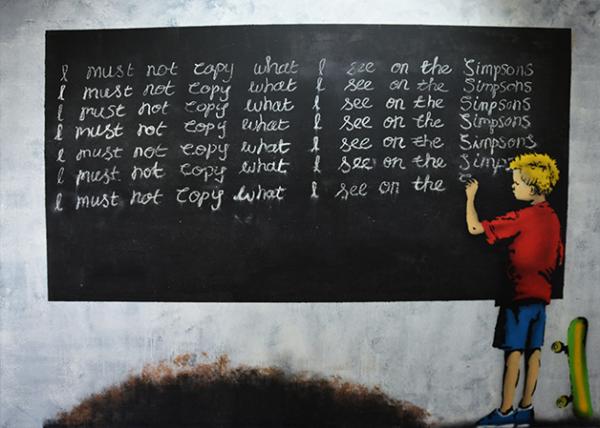 I must not copy what I see on the Simpsons
I must not copy what I see on the Simpsons
I must not copy what I see on the Simpsons
I must not copy what I see on the Simpsons
I must not copy what I see on the Simpsons
I must not copy what I see on the Simps
I must not copy what I see on the S